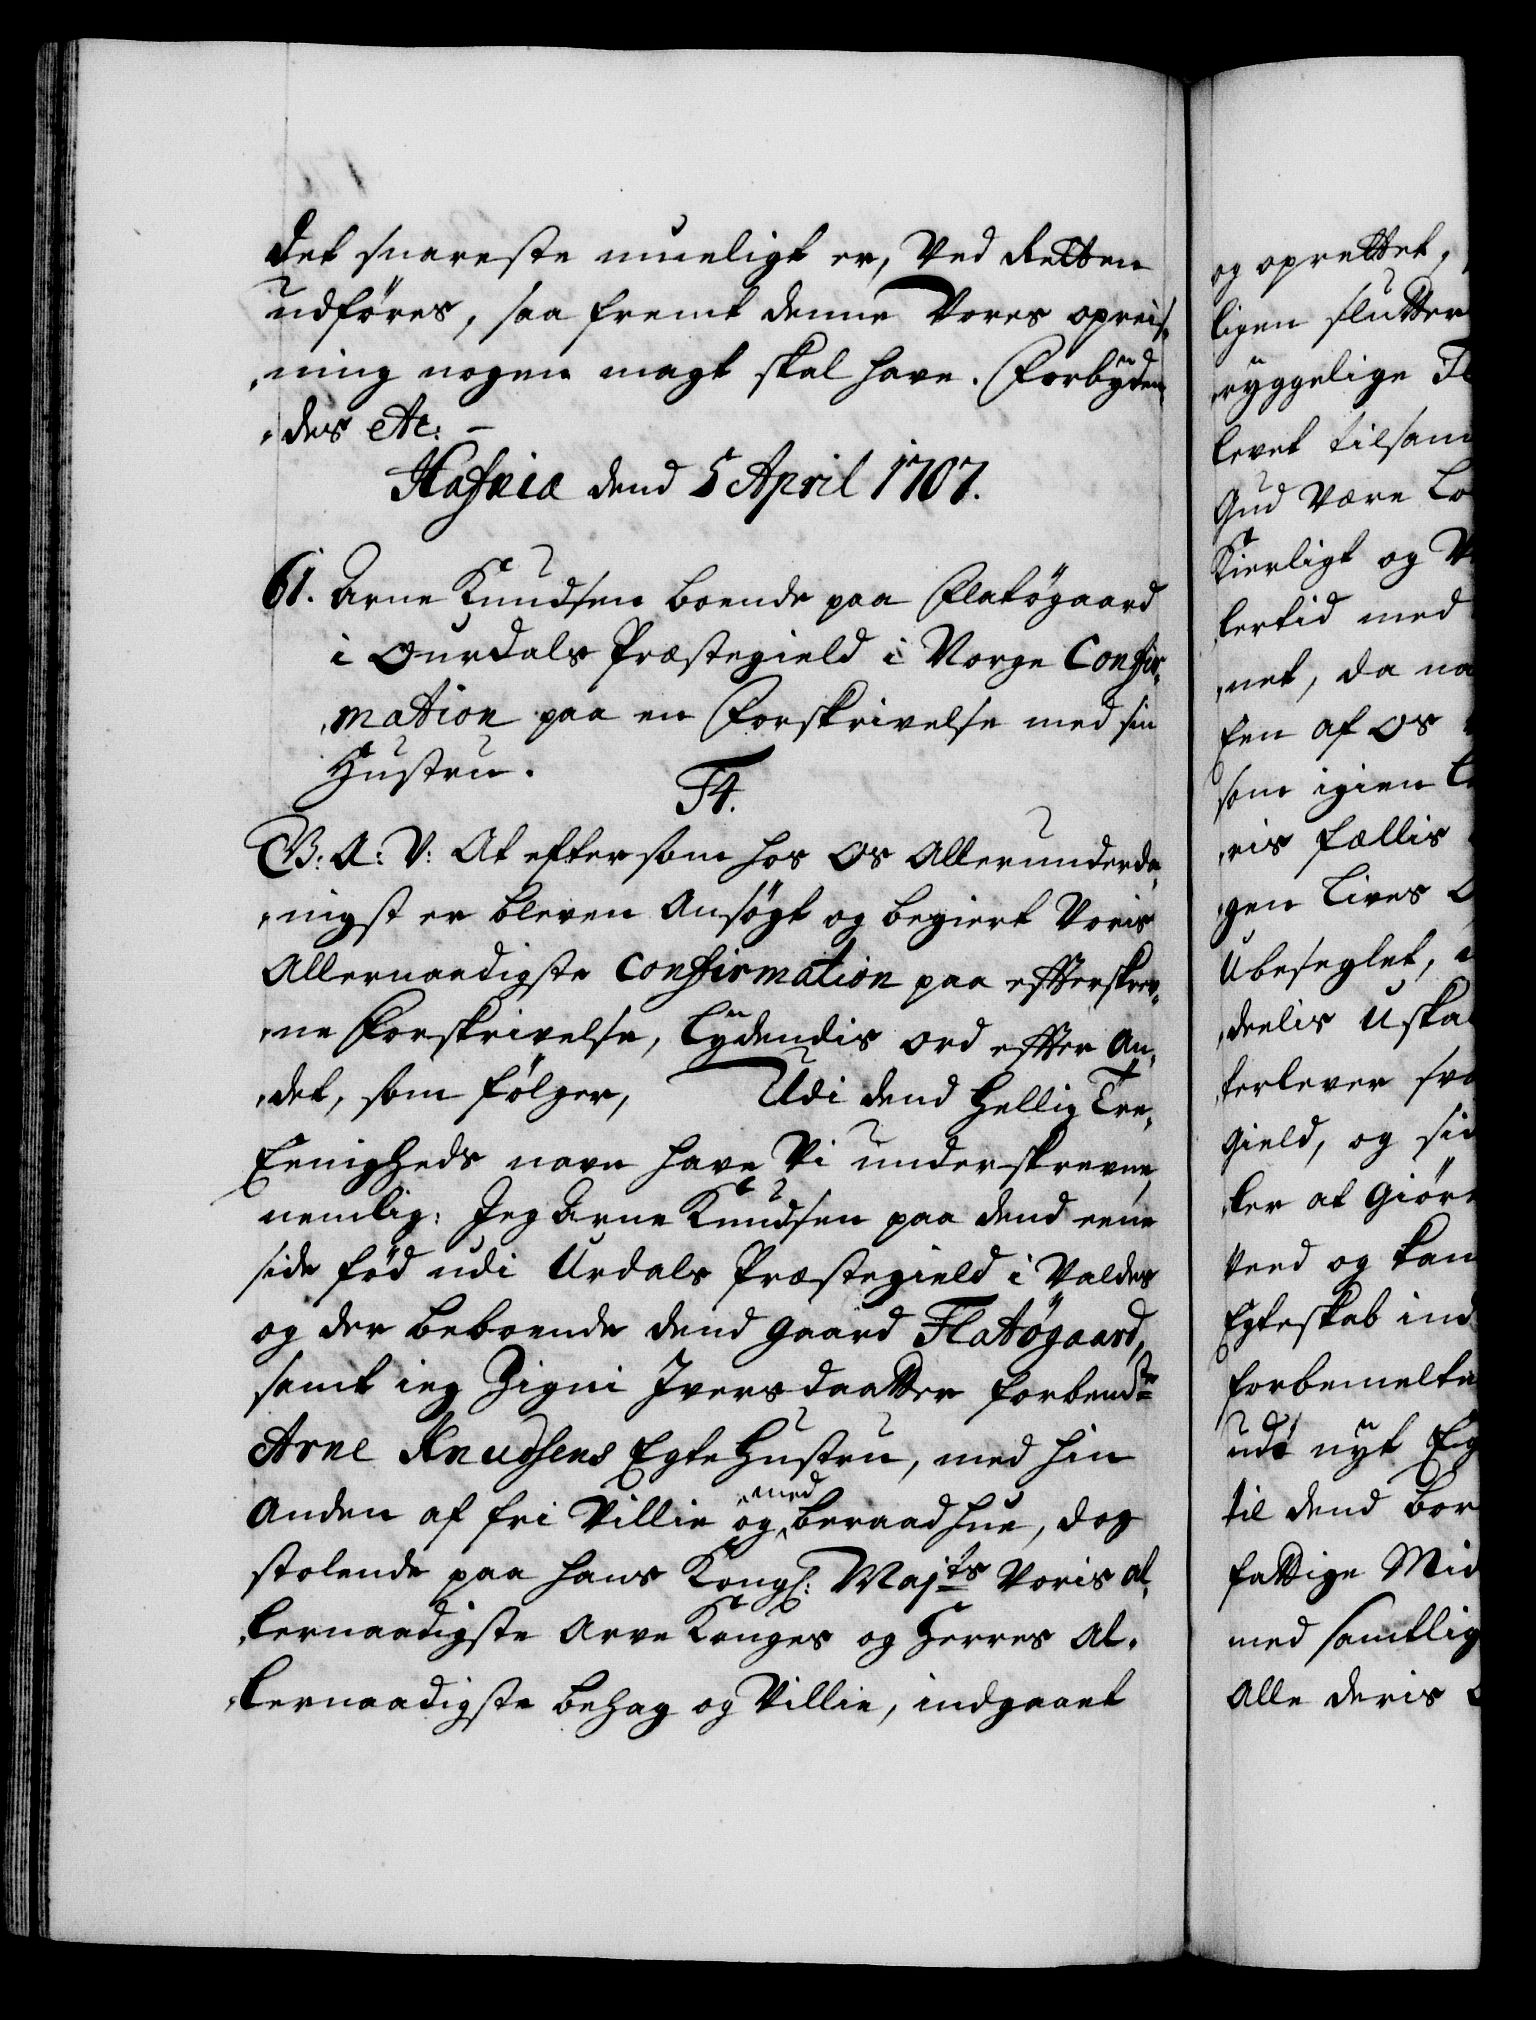 det snareste mueligt er, Ved Retten
udföres, saa fremt denne Vores opreis¸
¸ning nogen magt skal have. Forbÿden¸
¸des etc: –
Hafniæ dend 5 April 1707.
61. Arne Knudsen boende paa Flatögaard
i Ourdals Præstegield i Norge Confir¸
¸mation paa en Forskrivelse med sin
Hustru.
F4.
G: A: V: At eftersom hos Os Allerunderda¸
¸nigst er bleven Ansögt og begiert Voris
Allernaadigste Confirmation paa effterskrev¸
¸ne Forskrivelse, lÿdendis ord effter An¸
¸det, som fölger, Udi dend Hellig Tre¸
Eenigheds navn have Vi underskrevne,
nemlig: Jeg Arne Knudsen paa dend eene
side föd udi Urdals Præstegield i Valders
og der beboende dend gaard Flatögaard,
samt ieg Zigni Iversdaatter forbemdte
Arne Knudsens Egte Hustru, med hin
Anden af fri Villie og med beraad hue, dog
stolende paa hans Kongl: Majts Voris al¸
¸lernaadigste Arve Konges og Herres Al¸
¸lernaadigste behag og Villie, indgaaet
og oprettet,
ligen slutter
rÿggelige
levet tilsam
Gud være Lo
Kierligt og
lertid med
¸net, da na
Een af Os
som igien
¸ris fællis
¸gen Lives
Ubeseglet,
¸deelis Uska
¸terlever
gield, og
¸ler at Giöre
Veed og kan
Egteskab ind
forbemelte
udi nÿt Eg
til dend
fattige Mid
med samtlig
Alle deris